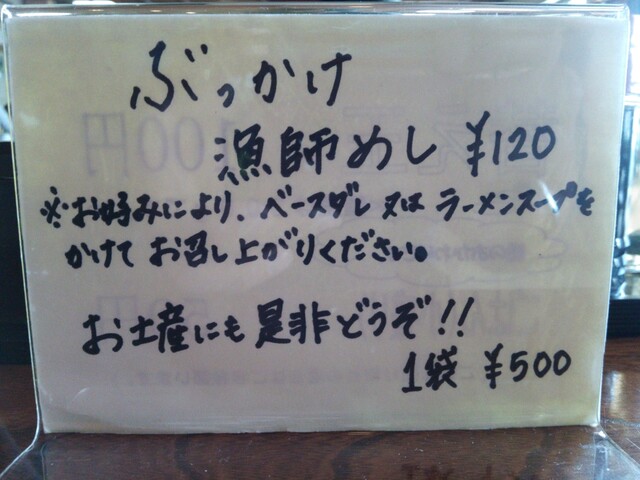 ぶっかけ
漁師めし ¥120
※お好みにより、ベースダレ又はラーメンスープを
かけてお召し上がりください。
お土産にも是非どうぞ!!
1袋 ¥500
100円